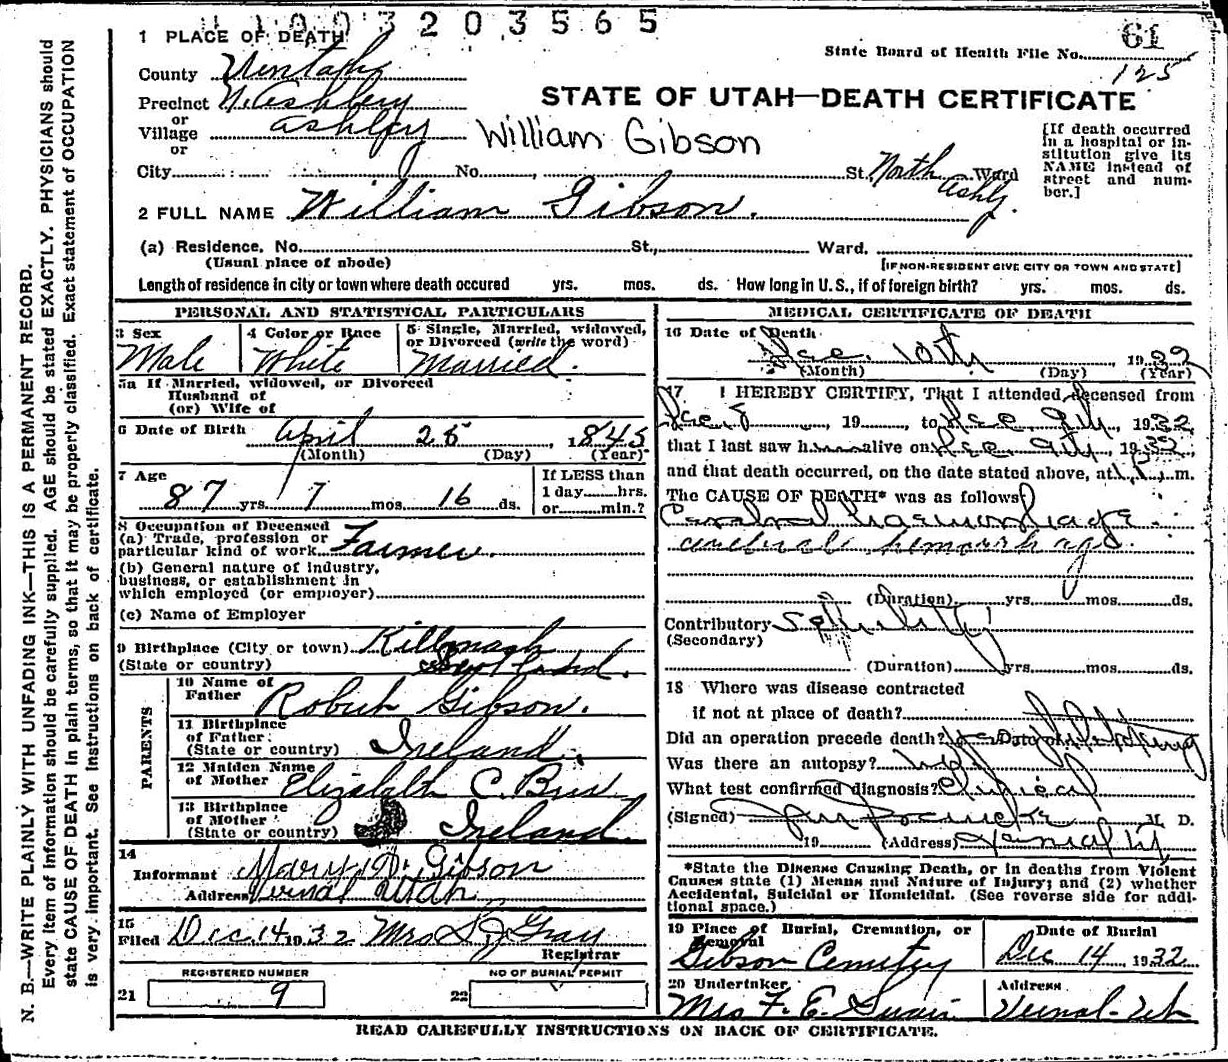 1003203565
61
1 PLACE OF DEATH
State Board of Health File No.
125
County Uintah
Precinct N. Ashley
or
Village Ashley
or
STATE OF UTAH—DEATH CERTIFICATE
William Gibson
[If death occurred in a hospital or in-stitution give its NAME instead of street and num-ber.]
City No. St. North Ashly. Ward
2 FULL NAME William Gibson.
(a) Residence. No. St., Ward.
(Usual place of abode)
[IF NON-RESIDENT GIVE CITY OR TOWN AND STATE]
Length of residence in city or town where death occured yrs. mos. ds. How long in U. S., if of foreign birth? yrs. mos. ds.
PERSONAL AND STATISTICAL PARTICULARS
3 Sex
Male
4 Color or Race
White
5 Single, Married, widowed,
or Divorced (write the word)
Married.
5a If Married, widowed, or Divorced
Husband of
(or) Wife of
6 Date of Birth April 25, 1845
(Month) (Day) (Year)
7 Age
87 yrs. 7 mos. 16 ds.
If LESS than
1 day hrs.
or min.?
8 Occupation of Deceased
(a) Trade, profession or
particular kind of work Farmer.
(b) General nature of industry,
business, or establishment in
which employed (or employer)
(c) Name of Employer
9 Birthplace (City or town)
(State or country) Scotland.
PARENTS
10 Name of
Father Robert Gibson.
11 Birthplace
of Father:
(State or country) Ireland.
12 Maiden Name
of Mother Elizabeth C.
13 Birthplace
of Mother
(State or country) Ireland
14
Informant Mary D. Gibson
Address Vernal Utah
15
Filed Dec. 14 1932 Mrs S J Gray
Registrar
REGISTERED NUMBER
21 9
NO OF BURIAL PERMIT
22
MEDICAL CERTIFICATE OF DEATH
16 Date of Death
Dec. 10th 1932
(Month) (Day) (Year)
17 I HEREBY CERTIFY, That I attended deceased from
Dec. 8, 19 to Dec. 9th, 1932,
that I last saw him alive on Dec. 9th, 1932,
and that death occurred, on the date stated above, at 1 P. m.
The CAUSE OF DEATH* was as follows
Cerebral haemorrhage.
cerebral hemorrhage.
(Duration) yrs. mos. ds.
Contributory
(Secondary)
Senility
(Duration) yrs. mos. ds.
18 Where was disease contracted
if not at place of death?
Did an operation precede death? Date of
Was there an autopsy? no
What test confirmed diagnosis? Clinical
(Signed) M. D.
19 (Address)
*State the Disease Causing Death, or in deaths from Violent
Causes state (1) Means and Nature of Injury; and (2) whether
Accidental, Suicidal or Homicidal. (See reverse side for addi-
tional space.)
19 Place of Burial, Cremation, or
Removal
Gibson Cemetery
Date of Burial
Dec 14, 1932
20 Undertaker
Mrs F. E. Swain
Address
Vernal-Ut
READ CAREFULLY INSTRUCTIONS ON BACK OF CERTIFICATE.
N. B.—WRITE PLAINLY WITH UNFADING INK—THIS IS A PERMANENT RECORD.
Every item of information should be carefully supplied. AGE should be stated EXACTLY. PHYSICIANS should
state CAUSE OF DEATH in plain terms, so that it may be properly classified. Exact statement of OCCUPATION
is very important. See instructions on back of certificate.